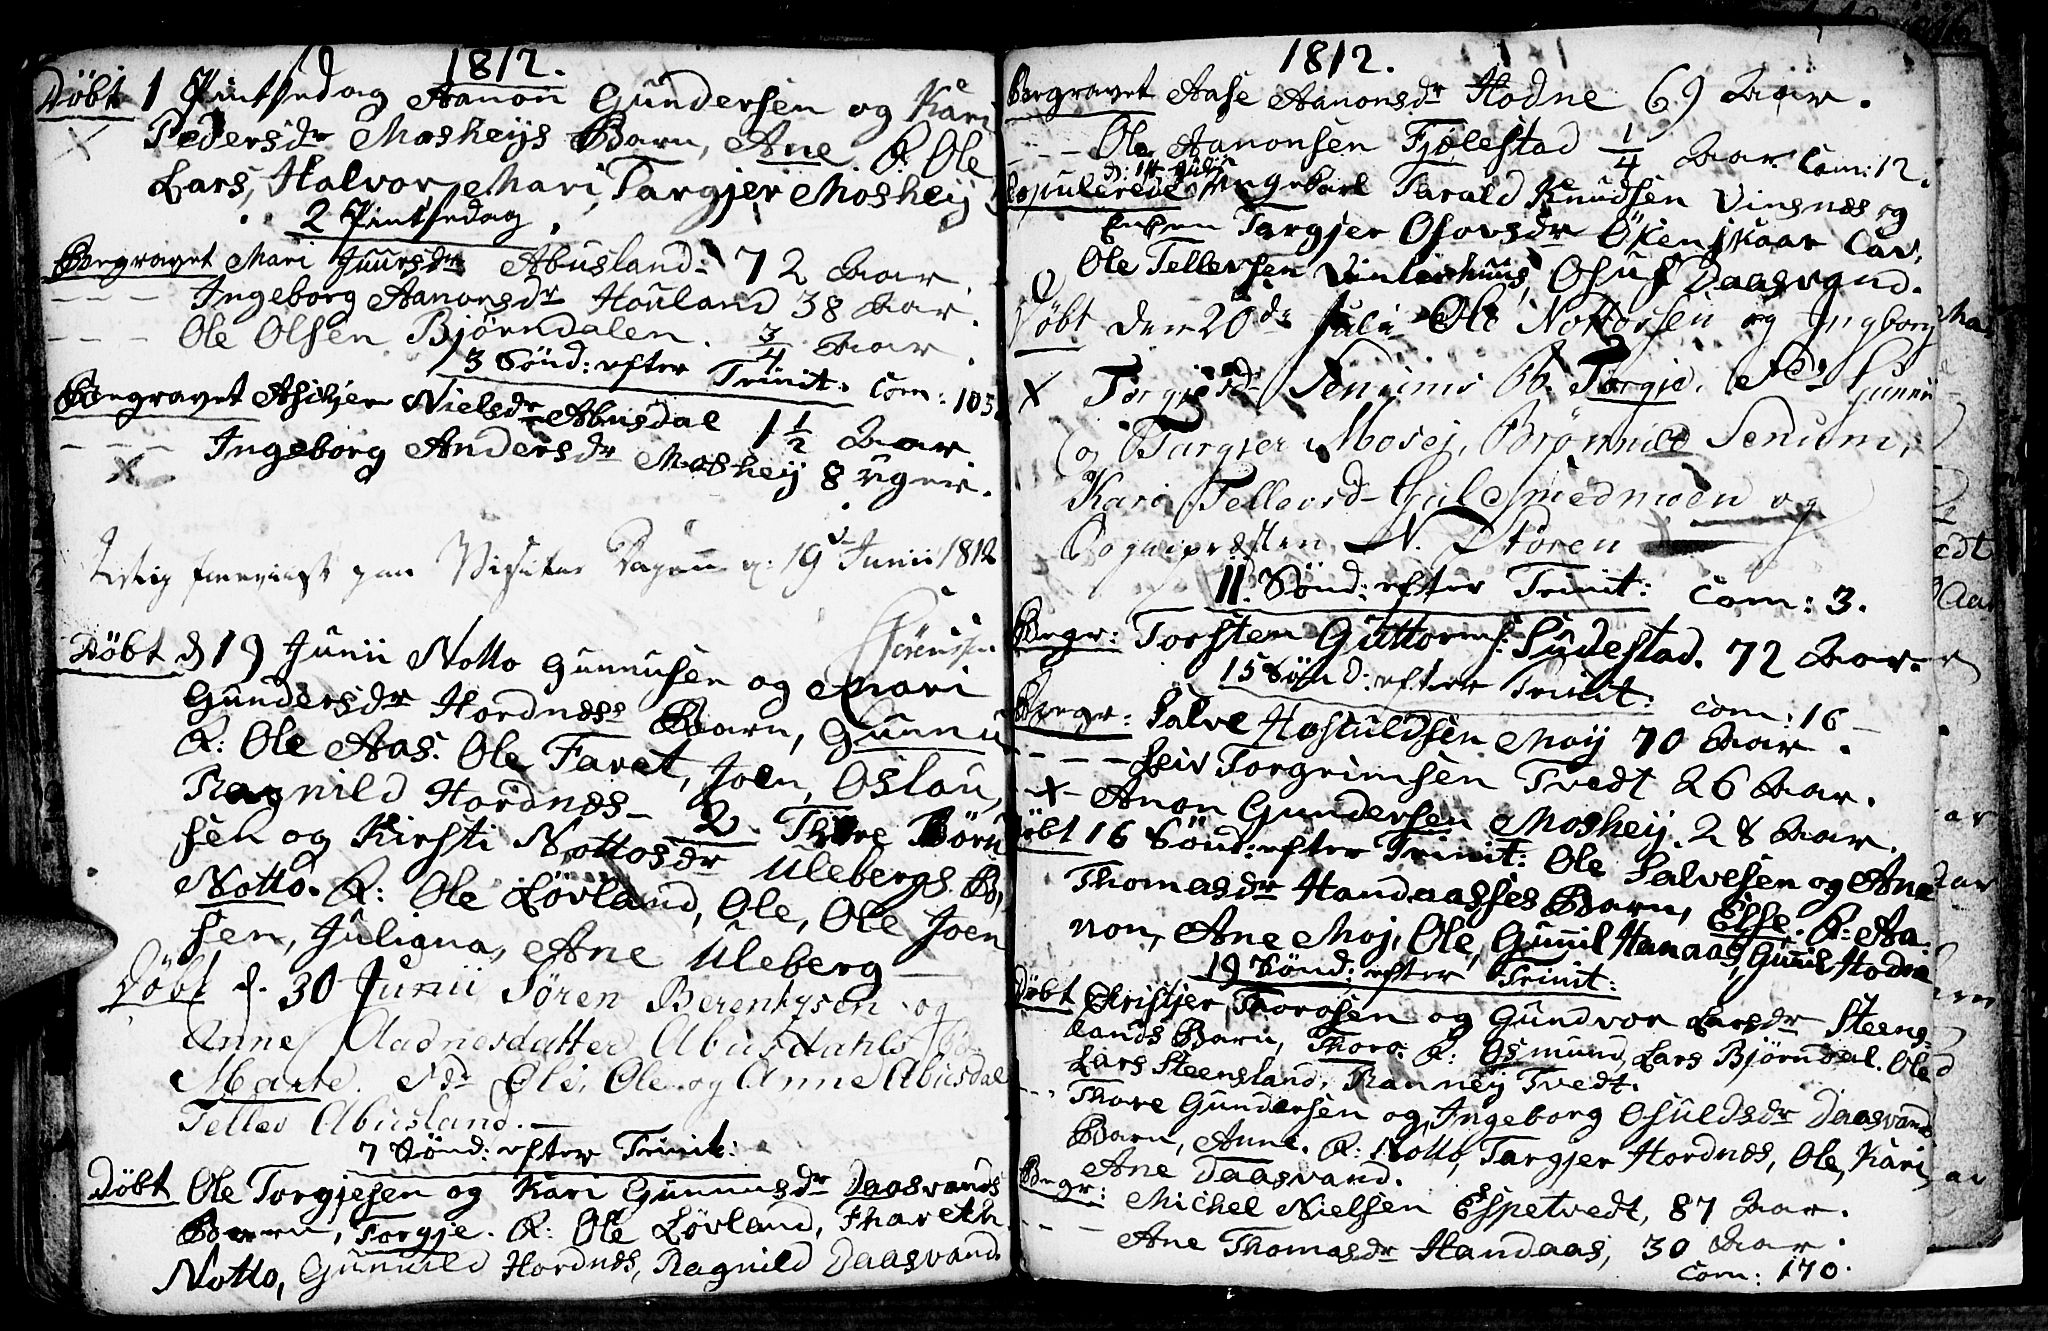 1812.
Döbt 1 Pintsedag Aanon Gundersen og Kari
Pedersdr Mosheys Barn, Ane F: Ole
Lars, Halvor, Mari, Targjer Moshey
2 Pintsedag.
Begravet Mari Juursdr Abusland: 72 Aar.
--- Ingeborg Aanonsdr Houland 38 Aar.
--- Ole Olsen Bjørndalen. 3/4 Aar.
3 Sönd: efter Trinit: Com: 105.
Begravet Asibjer Nielsdr Abusdal 1 1/2 Aar
--- Ingeborg Andersdr Moshey 8 Uger.
19 Junii 1812
Döbt d 19 Junii Notto Gunnusen og Mari
Gundersdr Hordness Barn, Gunnu
F: Ole Aas. Ole Faret, Joen, Oslou,
Ragnild Hordnes- 2. Thore Börn
sen og Kirsti Nottosdr Ulebergs B,
Notto. F: Ole Lövland, Ole, Ole Joen
sen, Juliana, Ane Uleberg
Döbt d. 30 Junii Søren Berentzsen og
Anne Aadnesdatter Abusdahls B:
Marte. Fdr Ole, Ole og Anne Abusdal
Tellev Abusland.
7 Sönd: efter Trinit:
Döbt Ole Torgjesen og Kari Gunnusdr Daasvands
Barn, Torgje. F: Ole Lövland, Thareth.
Notto, Gunnild Hordnes, Ragnild Daasvand.
1812.
Begravet Aase Aanonsdr Hodne 69 Aar.
--- Ole Aanonsen Fjølestad 1/4 Aar Com: 12.
Copulerede Ungekarl Tarald Knudsen Vinsnes og
Enken Targjer Osovsdr Ökenskaar Cav.
Ole Tellefsen Vinlerhuus, Osuf Daasvand.
Döbt den 20de Julii Ole Nottorsen og Ingborg
X Torgjesdr Senums B. Torgje. Fdr Gunnu
og Targjer Mosej, Brønnild Senum,
Kari Tellevsd- Guldsmedmoen og
Sogneprsten N. Støren
11. Sönd: efter Trinit: Com: 3.
Begr: Torsten Guttorms: Sudestad. 72 Aar.
15 Sönd: efter Trinit: Com: 16-
Begr: Salve Hosuldsen Moy 70 Aar.
--- Leiv Torgrimsen Tvedt 26 Aar.
-X- Anon Gundersen Moshey. 28 Aar.
Döbt 16 Sönd: efter Trinit: Ole Salvesen og Ane
Thomasdr Handaasses Barn, Else. F: Aa
non, Ane Moj, Ole, Gunnil Hanaas, Gunnil Hodne
19 Sönd: efter Trinit:
Döbt Christjer Thorosen og Gundvor Larsdr Steens-
lands Barn, Thoro. F: Osmund, Lars Bjørndal. Ole
Lars Steensland, Ranney Tvedt.
--- Thore Gundersen og Ingeborg Osuldsdr Daasvand
Barn, Anne. F: Notto, Targjer Hordnes, Ole, Kari,
Ane Daasvand.
Begr: Michel Nielsen Espetvedt, 87 Aar.
--- Ane Thomasdr Handaas, 30 Aar.
Com: 170.